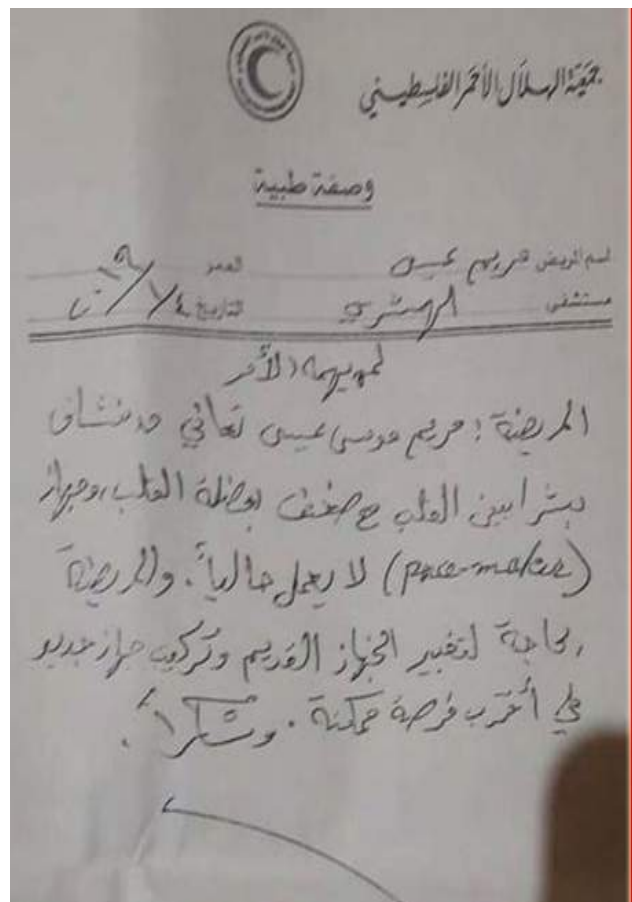 جمعية الهلال الأحمر الفلسطيني
وصفة طبية
اسم المريض مريم عيسى العمر
مستشفى الهمشري التاريخ
لمن يهمه الأمر
المريضة: مريم موسى عيسى تعاني من نشاف
بشرايين القلب مع ضعف بعضلة القلب، وجهاز
(pace-maker) لا يعمل حالياً. والمريضة
بحاجة لتغيير الجهاز القديم وتركيب جهاز جديد
في أقرب فرصة ممكنة. وشكراً.